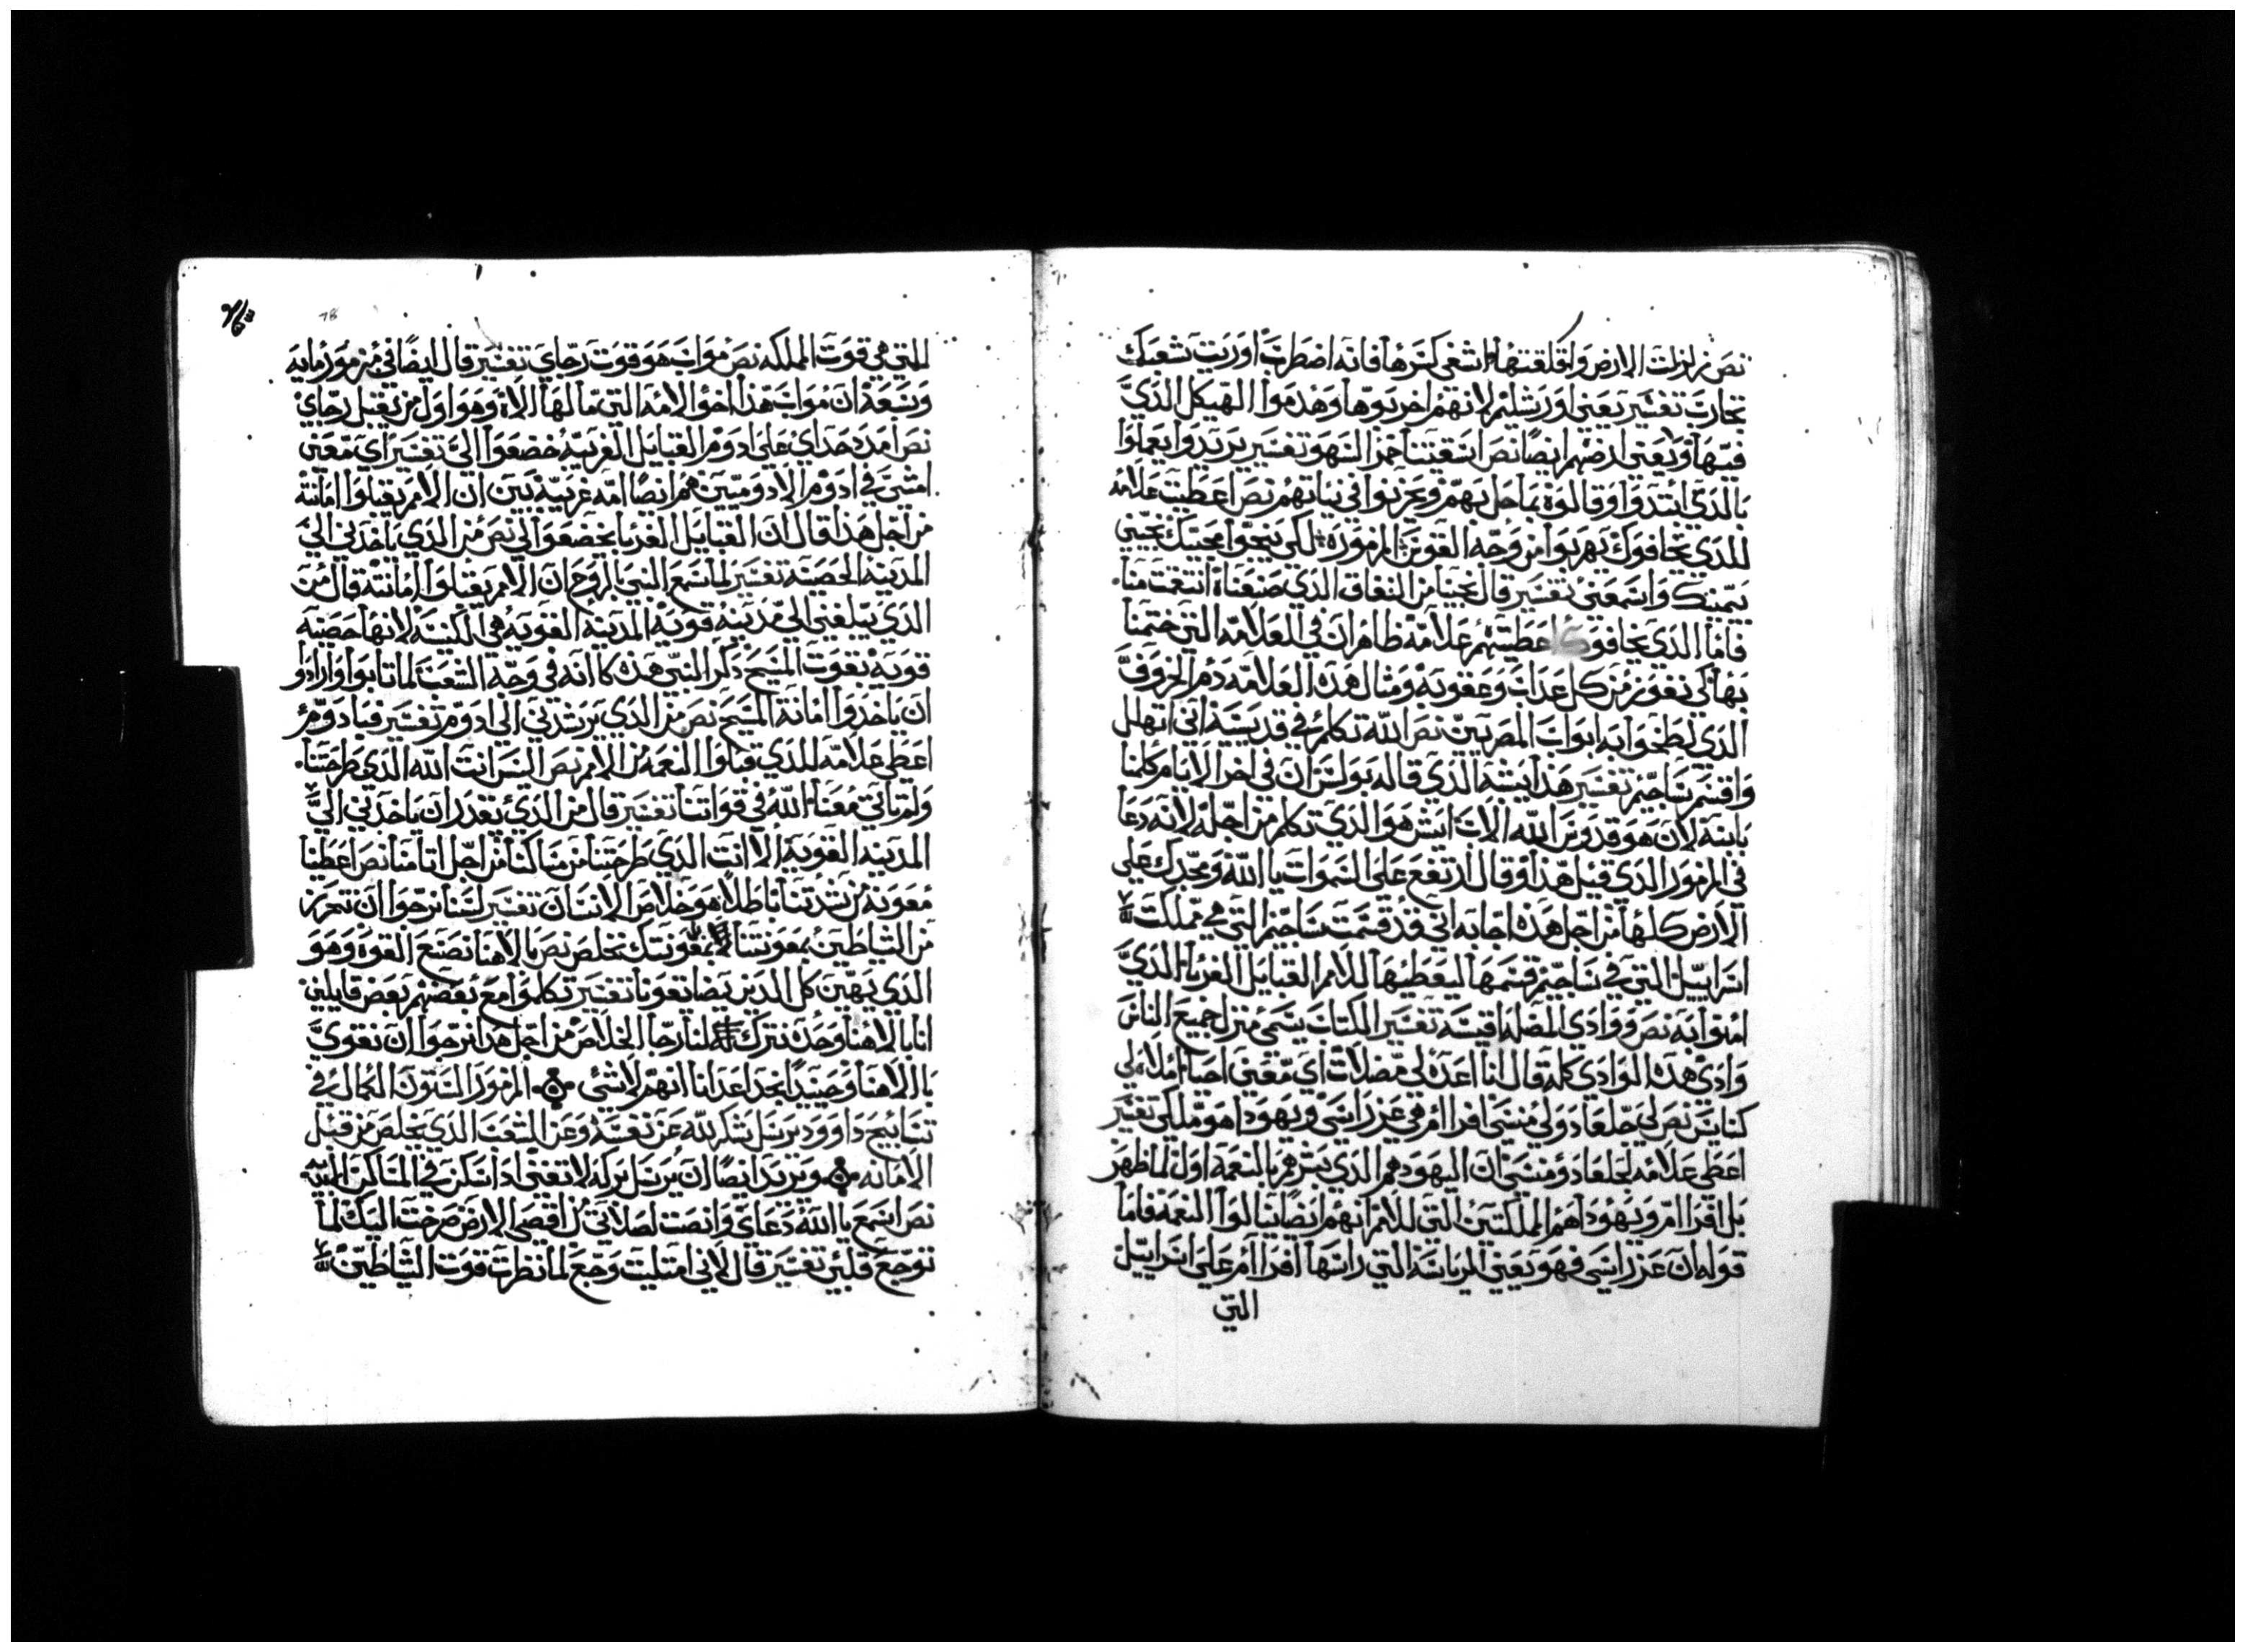 نص زلزلت الارض واقلقتها اشفي كسرها فانه اضطرب اوريت شعبك
تجارب تفسير يعني اورشليم لانهم اخربوها وهدموا الهيكل الذي
فيها ويعني ارضهم ايضا نص اسقيتنا خمر السهو تفسير يريدوا يعملوا
بالذي ابتدوا وقالوه بما حل بهم وعزبوا في نياتهم نص اعطيت علامه
للذي يخافوك يهربوا من وجه القوس المزموره لكي ينجوا محبيك نجيني
بيمينك واسمعني تفسير قال نجينا من النفاق الذي صنعناه انتقمت منا
فاما الذي يخافوك اعطيتهم علامه ظاهران في العلامه التي ختمنا
بها لكي نفوز من كل عداب وعقوبه ومثال هذه العلامه دم الخروف
الذي لطخوا به ابواب المصريين نص الله تكلم في قديسه اني اتهلل
واقسم ساجيم تفسير هذا يشبه الذي قاله بولس ان في اخر الايام كلمنا
بابنه لان هو قدوس الله الاب ايش هو الذي تكلم من اجله لانه دعا
في المزمور الذي قبل هذا وقال ارتفع على السموات يا الله ومجدك على
الارض كلها من اجل هذه اجابه اني قد قسمت ساجيم التي هي مملكت
اسراييل التي في ساجيم قسمها ليعطيها للامم القبايل الغربا الذي
امنوا به نص ووادي المضله اقيسه تفسير الكتاب يسمي منزل جميع الناس
وادي هذه الوادي كله قال انا اعده لي مضلات اي معني احيا املاه لي
كنايس نص لي جلعاد ولي منسي افراام في عز راسي ويهودا هو ملكي تفسير
اعطي علامه لجلعاد ومنسي ان اليهود هم الذي بشرهم بالنعمه اول لما ظهر
بل افراام ويهودا هم المملكتين التي للامم انهم ايضا ينالوا النعمه فاما
قوله ان عز راسي فهو يعني الرياسه التي راسها افراام على اسراييل
التي
التي هي قوت المملكه نص مواب هو قوت رجاي تفسير قال ايضا في مزمور مايه
وسبعه ان مواب هذا اخو الامه التي مالها الاه وهو اول من يقبل رجاي
نص امدد حداي على ادوم القبايل الغريبه خضعوا الي تفسير اي معني
امشي في ادوم الادوميين هم ايضا امه غريبه بين ان الامم يقبلوا امانته
من اجل هذا قال ان القبايل الغربا يخضعوا الي نص من الذي ياخدني الي
المدينه الحصينه تفسير لما سمع النبي بالروح ان الامم يقبلوا امانته قال من
الذي يبلغني الى مدينه قويه المدينه القويه هي الكنيسه لانها حصينه
قويه بقوت المسيح ذكر النبي هذه كاانه في وجه الشعب لما تابوا وارادو
ان ياخدوا امانة المسيح نص من الذي يرشدني الى ادوم تفسير فبادوم
اعطي علامه للذي قبلوا النعمه من الامم نص اليس انت الله الذي طرحتنا
ولم تاتي معنا الله في قواتنا تفسير قال من الذي يقدر ان ياخدني الي
المدينه القويه الا انت الذي طرحتنا من مساكننا من اجل اتامنا نص اعطينا
معونه من شدتنا باطلا هو خلاص الانسان تفسير لسنا نرجوا ان نتحرز
من الشياطين بمعونتنا بل بمعونتك نخلص نص بالاهنا نصنع القوه وهو
الذي يهين كل الذين يضايقونا تفسير تكلموا مع بعضهم بعض قايلين
انا بالاهنا وحده نترك لنا رجا الخلاص من اجل هذا نرجوا ان نقوي
بالاهنا وحينيد نجد اعدانا انهم لاشئ المزمور الستون الكمال في
تسابيح داوود يرتل يشكر لله عن نفسه وعن الشعب الذي يخلص من قبل
الامانه ويريد ايضا ان يرتل بركه لا تفني اد اسكن في المساكن
نص اسمع يا الله دعاي وانصت لصلاتي من اقصي الارض صرخت اليك لما
توجع قلبي تفسير قال لاني امتليت وجع لما نظرت قوت الشياطين